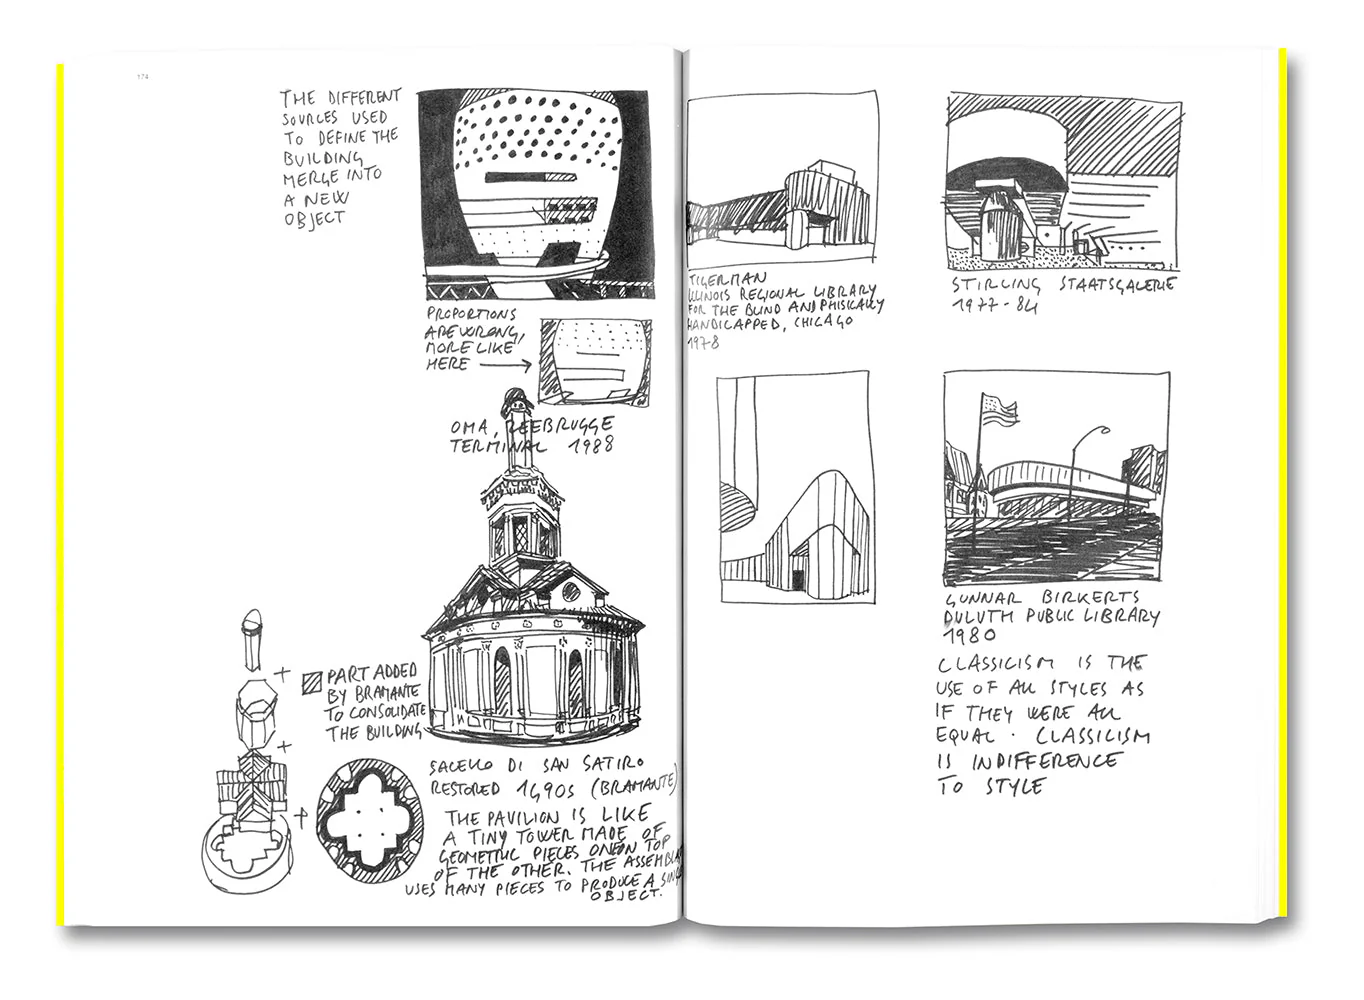 174
THE DIFFERENT
SOURCES USED
TO DEFINE THE
BUILDING
MERGE INTO
A NEW
OBJECT
PROPORTIONS
ARE WRONG,
MORE LIKE
HERE
OMA, ZEEBRUGGE
TERMINAL 1988
PART ADDED
BY BRAMANTE
TO CONSOLIDATE
THE BUILDING
SACELLO DI SAN SATIRO
RESTORED 1490S (BRAMANTE)
THE PAVILION IS LIKE
A TINY TOWER MADE OF
GEOMETRIC PIECES ON TOP
OF THE OTHER. THE
USES MANY PIECES TO PRODUCE A
OBJECT.
TIGERMAN
ILLINOIS REGIONAL LIBRARY
FOR THE BLIND AND PHISICALLY
HANDICAPPED, CHICAGO
1978
STIRLING STAATSGALERIE
1977-84
GUNNAR BIRKERTS
DULUTH PUBLIC LIBRARY
1980
CLASSICISM IS THE
USE OF ALL STYLES AS
IF THEY WERE ALL
EQUAL. CLASSICISM
IS INDIFFERENCE
TO STYLE